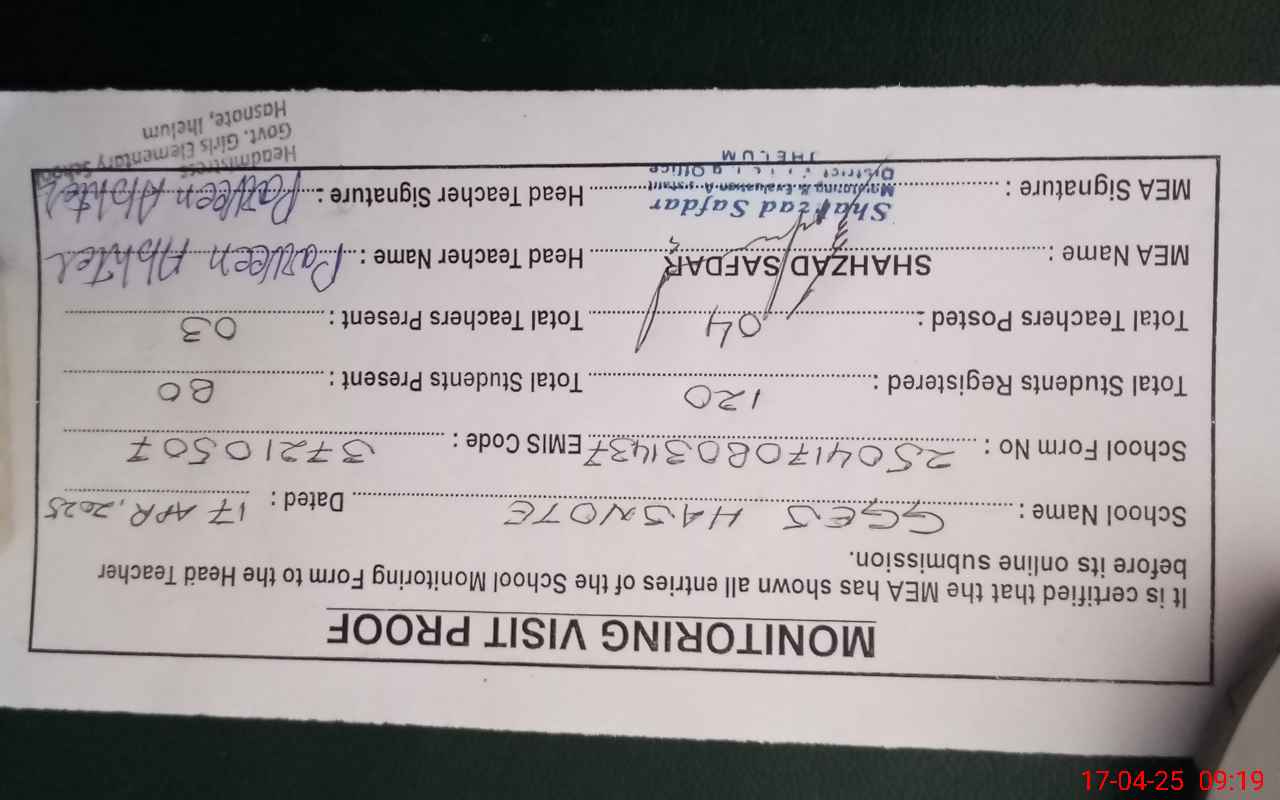 MONITORING VISIT PROOF
It is certified that the MEA has shown all entries of the School Monitoring Form to the Head Teacher
before its online submission.
School Name : GGES HASNOTE Dated : 17 APR, 2025
School Form No : 25041708031437 EMIS Code : 37210507
Total Students Registered : 120 Total Students Present : 80
Total Teachers Posted : 04 Total Teachers Present : 03
MEA Name : SHAHZAD SAFDAR Head Teacher Name : Parveen Akhter
MEA Signature : Head Teacher Signature : Parveen Akhter
Shahzad Safdar
Monitoring & Evaluation Assistant
District Office
JHELUM
Headmistress
Govt. Girls Elementary School
Hasnote, Jhelum
17-04-25 09:19